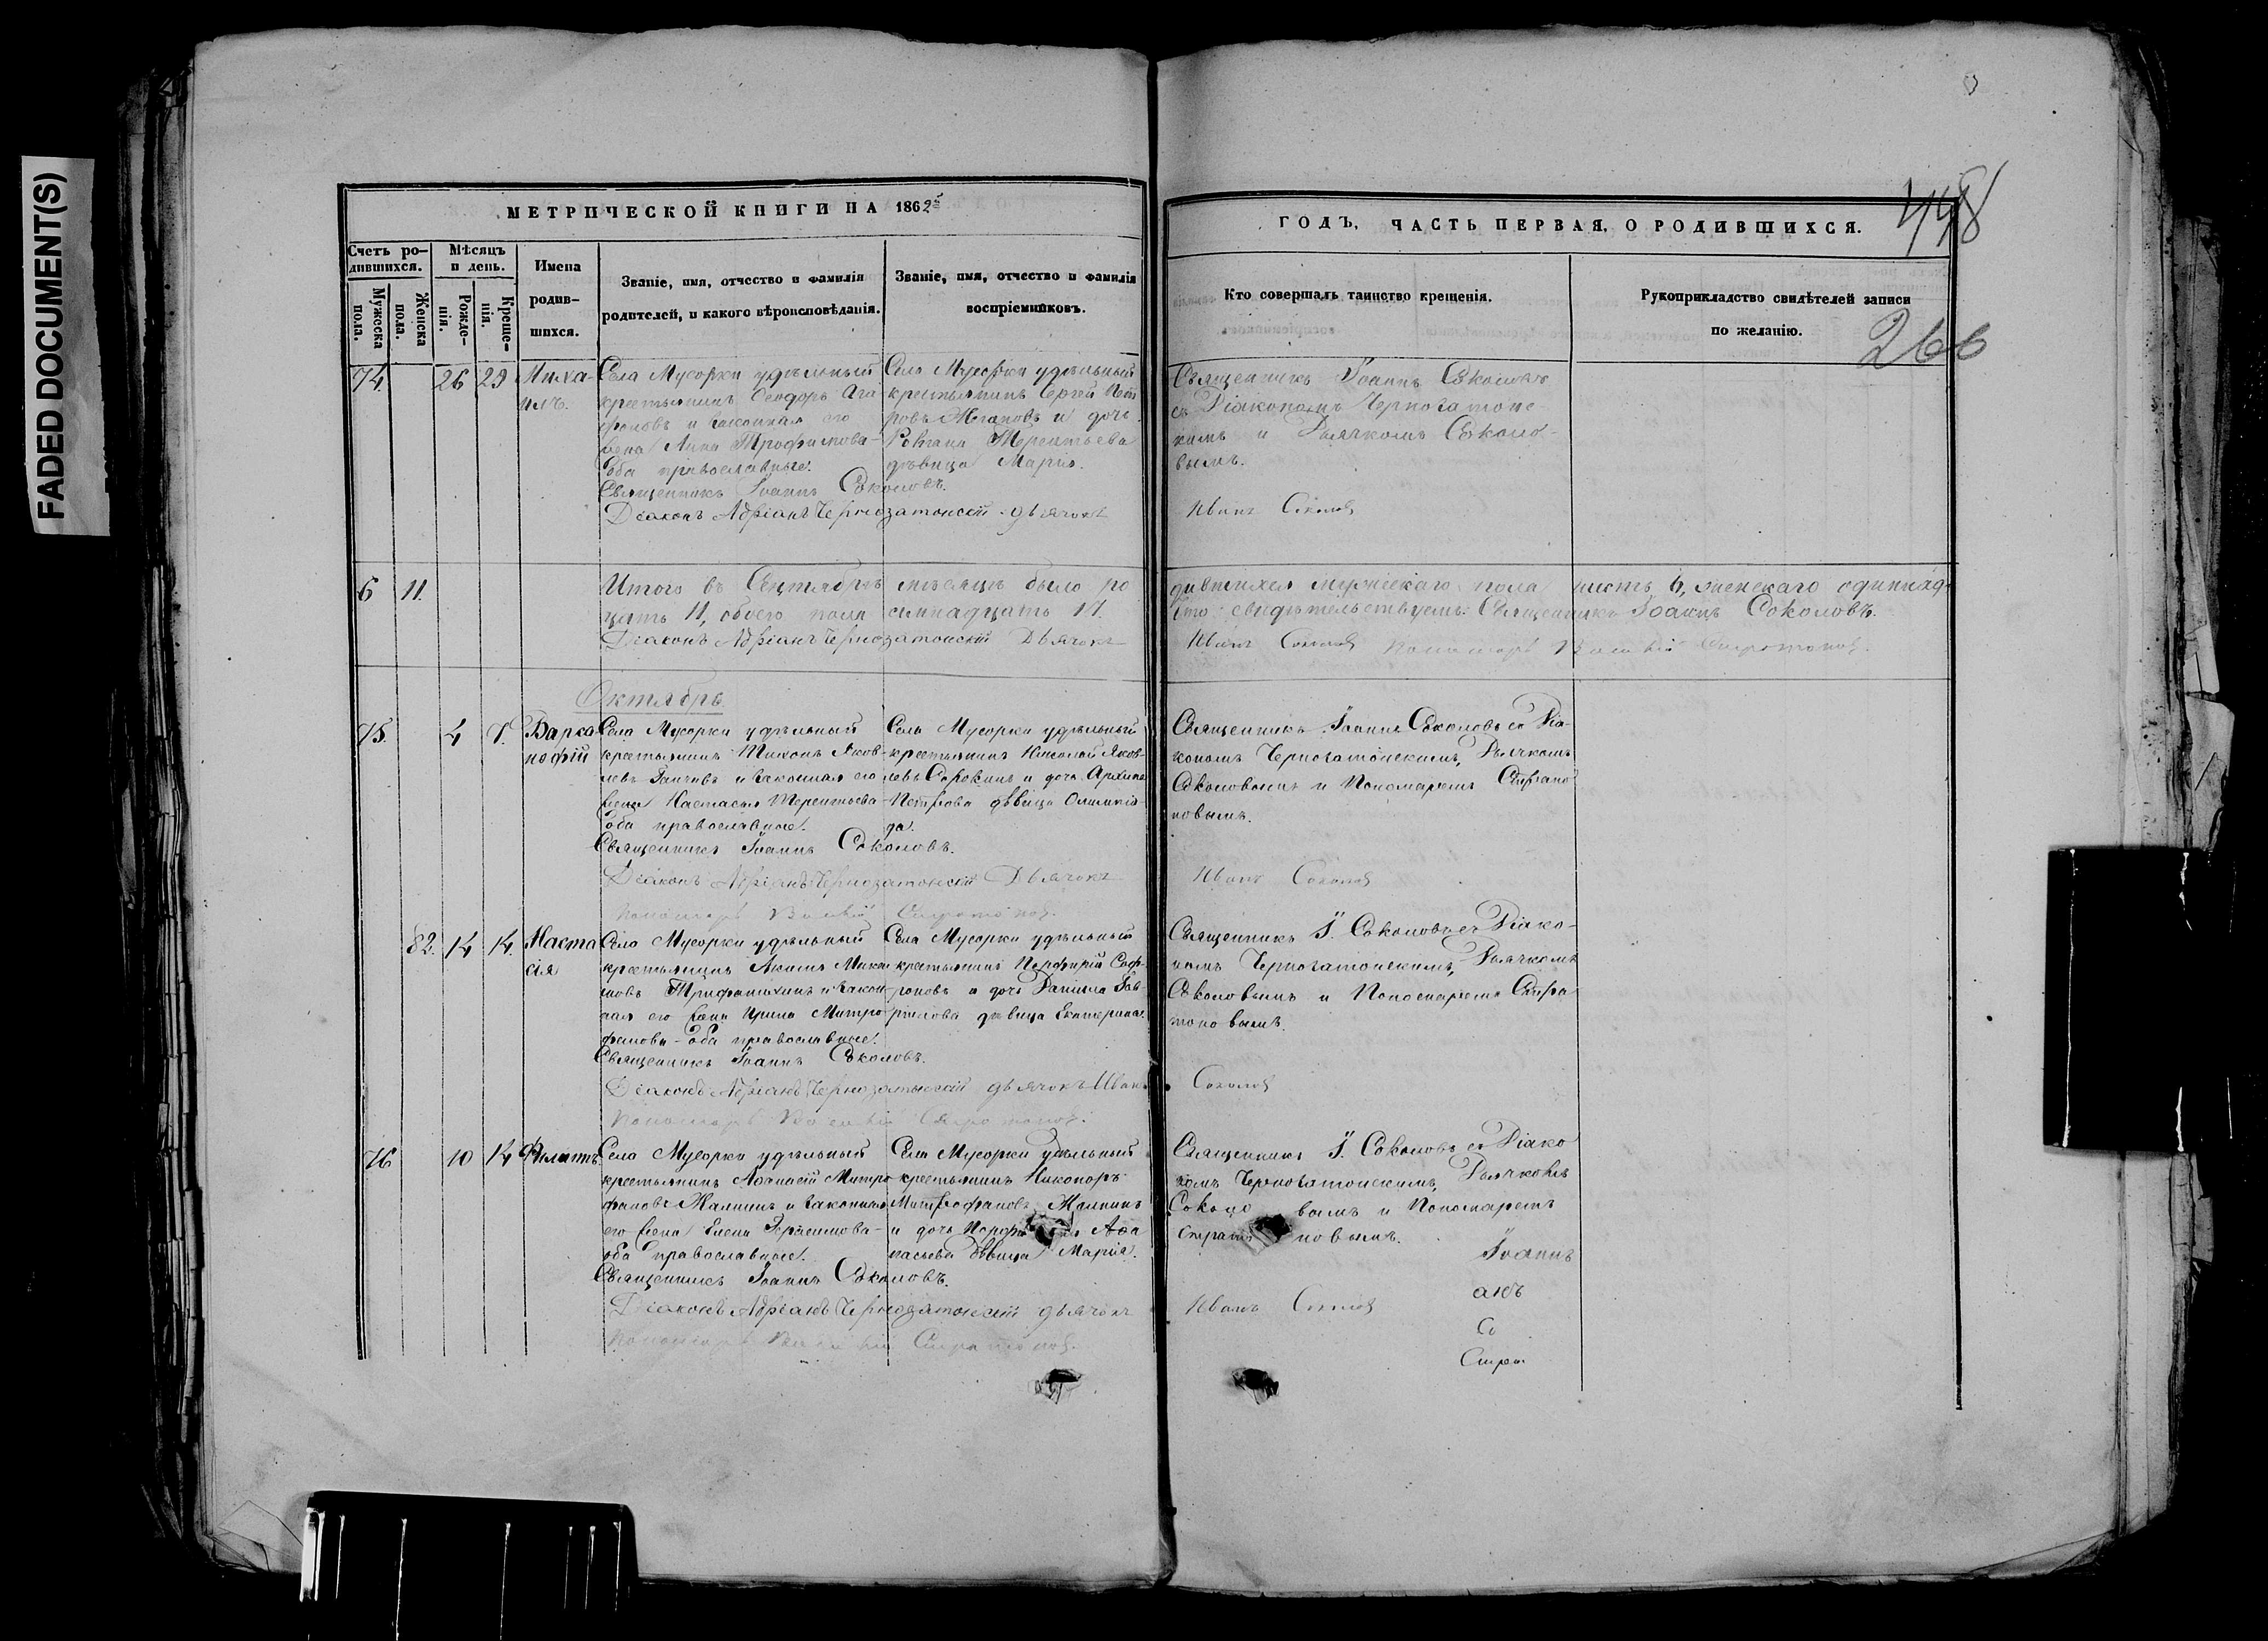 FADED DOCUMENT(S)
МЕТРИЧЕСКОЙ КНИГИ НА 1862
ГОДЪ, ЧАСТЬ ПЕРВАЯ, О РОДИВШИХСЯ.
448
266
Счетъ ро-
дившихся.
Мужеска
пола.
Женска
пола.
Мѣсяцъ
и день.
Рожде-
нія.
Креще-
нія.
Имена
родив-
шихся.
Званіе, имя, отчество и фамилія
родителей, и какого вѣроисповѣданія.
Званіе, имя, отчество и фамилія
воспріемниковъ.
Кто совершалъ таинство крещенія.
Рукоприкладство свидѣтелей записи
по желанію.
74.
26
29
Миха-
илъ.
Села Мусорки удѣльный
крестьянинъ Ѳеодоръ Ага
фоновъ и законная его
жена Анна Трофимова-
оба православные.
Священникъ Іоаннъ Соколовъ.
Діаконъ Адріанъ Чернозатонскій дьячокъ
Села Мусорки удѣльный
крестьянинъ Сергей Пет
ровъ и дочь
Романа Терентьева
дѣвица Марія.
Священникъ Іоаннъ Соколовъ
съ Діакономъ Чернозатонс-
кимъ и Дьячкомъ Соколо-
вымъ.
Иванъ Соколов
6
11.
Итого въ Сентябрѣ мѣсяцѣ было ро
дившихся мужескаго пола шесть 6, женскаго одиннад-
цать 11, обоего пола семнадцать 17.
Что свидѣтельствуемъ: Священникъ Іоаннъ Соколовъ.
Діаконъ Адріанъ Чернозатонскій Дьячокъ
Иванъ Соколов Пономарь Стратонов.
Октябрь
75.
4
7.
Варсо
нофій
Села Мусорки удѣльный
крестьянинъ Тихонъ Яков-
левъ и законная его
жена Настасья Терентьева
оба православные.
Священникъ Іоаннъ Соколовъ.
Діаконъ Адріанъ Чернозатонскій Дьячокъ
Пономарь Стратонов.
Села Мусорки удѣльный
крестьянинъ Николай Яков-
левъ Сорокинъ и дочь Архипа
Петрова дѣвица Олимпія-
да.
Священникъ Іоаннъ Соколовъ съ Діа-
кономъ Чернозатонскимъ, Дьячкомъ
Соколовымъ и Пономаремъ Страто
новымъ.
Иванъ Соколов
82.
14
14.
Наста
сія
Села Мусорки удѣльный
крестьянинъ Акимъ Михаи
ловъ и закон
ная его жена Ирина Митро
фанова - оба православные.
Священникъ Іоаннъ Соколовъ.
Діаконъ Адріанъ Чернозатонскій дьячокъ Иван
Пономарь Стратонов.
Села Мусорки удѣльный
крестьянинъ Порфирій Соф-
роновъ и дочь Даніила Гав-
рилова дѣвица Екатерина.
Священникъ І. Соколовъ съ Діако-
номъ Чернозатонскимъ, Дьячкомъ
Соколовымъ и Пономаремъ Стра
тоновымъ.
Соколов
76
10
14
Филиппъ
Села Мусорки удѣльный
крестьянинъ Аѳанасій Митро
фановъ Жалнинъ и законная
его жена Елена Герасимова-
оба православные.
Священникъ Іоаннъ Соколовъ.
Діаконъ Адріанъ Чернозатонскій дьячокъ
Пономарь Стратонов.
Села Мусорки удѣльный
крестьянинъ Никоноръ
Митрофановъ Жалнинъ
и дочь Аѳа
насьева дѣвица Марія.
Священникъ І. Соколовъ съ Діако
номъ Чернозатонскимъ, Дьячкомъ
Соколо вымъ и Пономаремъ
Страто новымъ.
Иванъ Соколов
Іоаннъ
анъ
Со
Страт